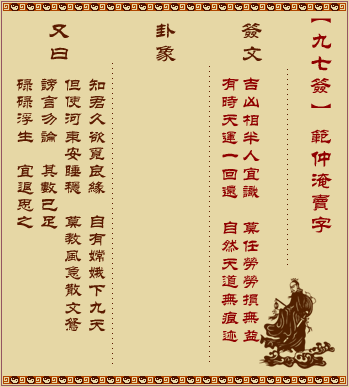 【九七簽】 範仲淹賣字
簽文
吉凶相半人宜識 莫任勞勞損無益
有時天運一回還 自然天道無痕迹
卦象
又曰
知君久欲覓良緣 自有嫦娥下九天
但使河東安睡穩 莫教風急散文鴛
謗言勿論 其數已足
碌碌浮生 宜退思之